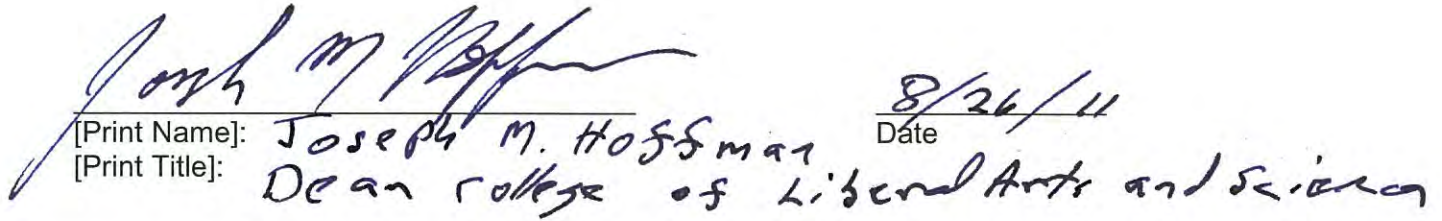 Joseph M Hoffman
8/26/11
[Print Name]: Joseph M. Hoffman
Date
[Print Title]: Dean College of Liberal Arts and Sciences